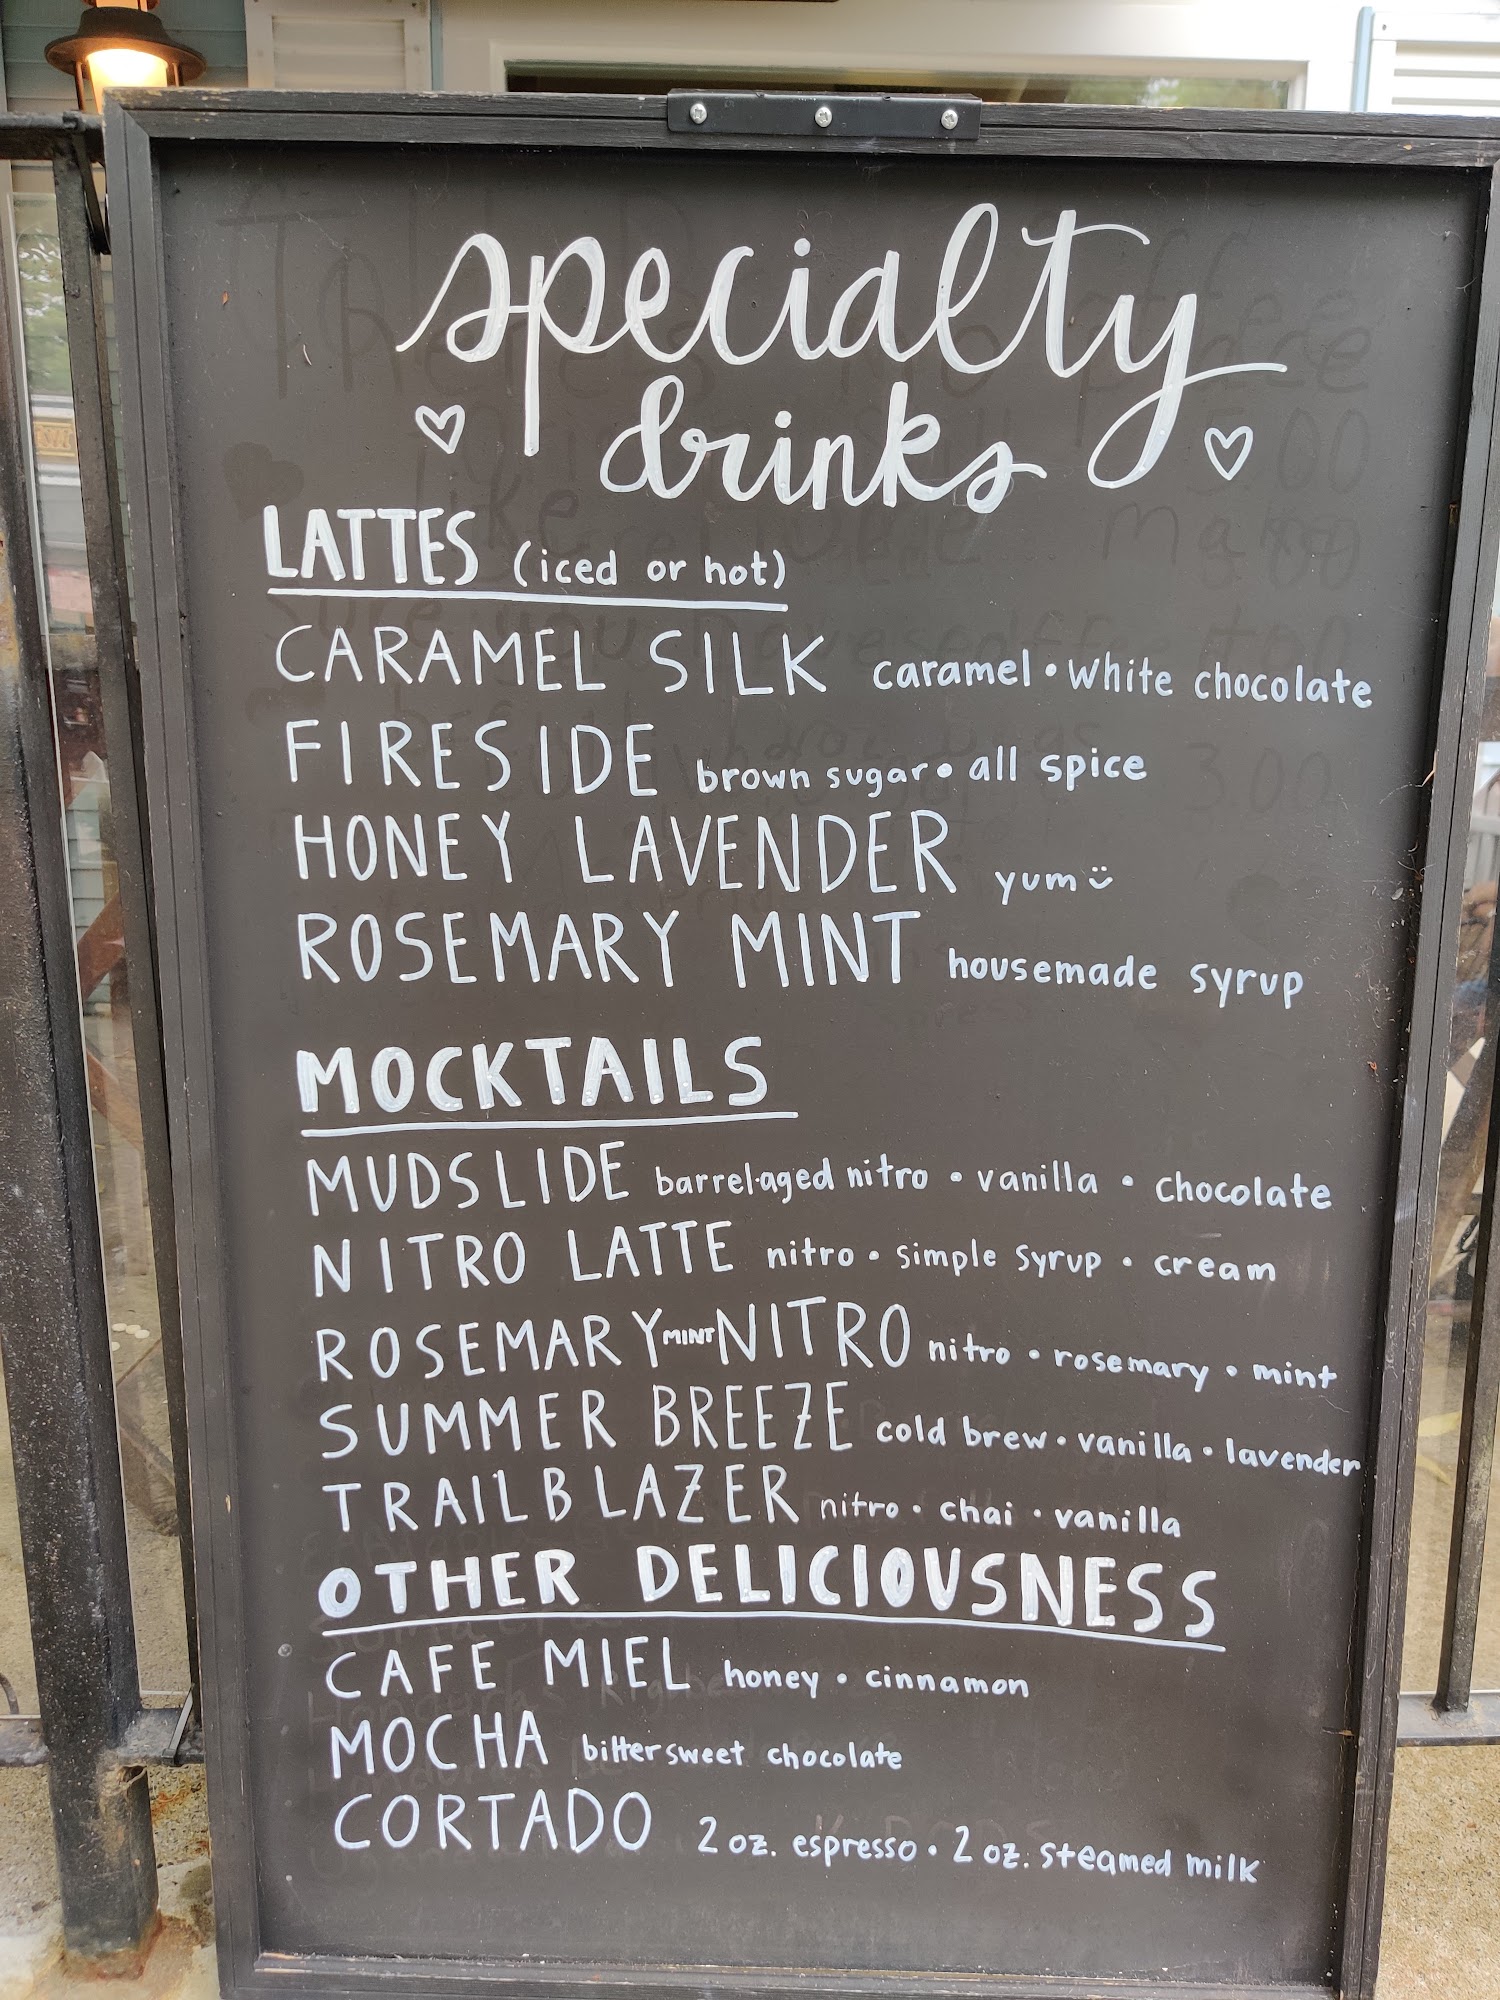 specialty
drinks
LATTES (iced or hot)
CARAMEL SILK caramel • white chocolate
FIRESIDE brown sugar • all spice
HONEY LAVENDER yum
ROSEMARY MINT housemade syrup
MOCKTAILS
MUDSLIDE barrel-aged nitro • vanilla • chocolate
NITRO LATTE nitro • simple syrup • cream
ROSEMARY MINT NITRO nitro • rosemary • mint
SUMMER BREEZE cold brew • vanilla • lavender
TRAILBLAZER nitro • chai • vanilla
OTHER DELICIOUSNESS
CAFE MIEL honey • cinnamon
MOCHA bittersweet chocolate
CORTADO 2 oz. espresso • 2 oz. steamed milk